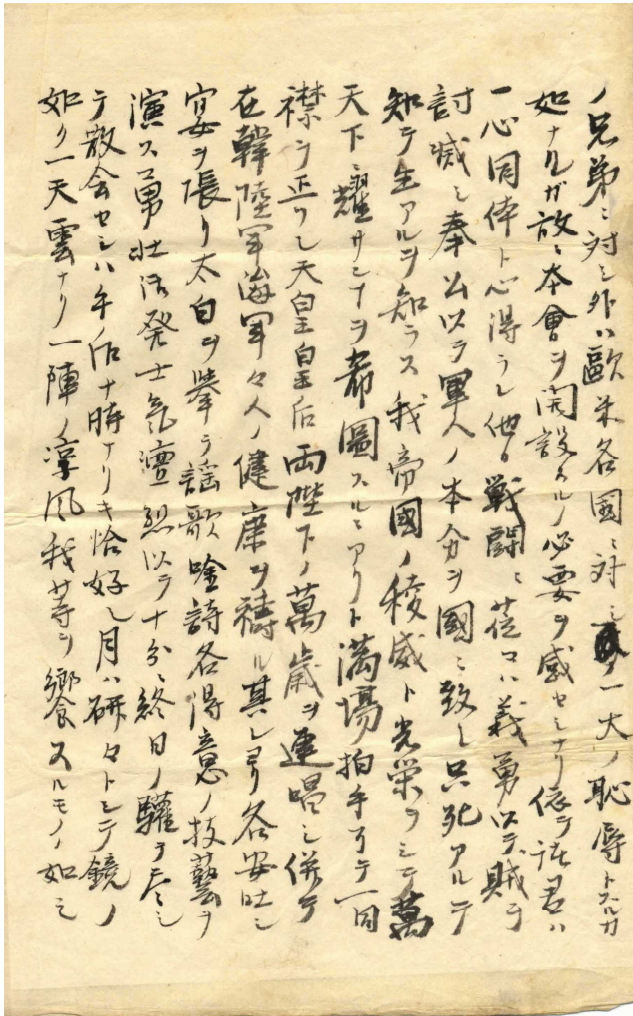 ノ兄弟ニ対シ外ハ歐米各國ニ対シ一大ノ恥辱トスルカ
如ナルガ故ニ本會ヲ開設スルノ必要ヲ感セシナリ依テ諸君ハ
一心同体ト心得ラレ他日戦闘ニ莅マハ義勇以テ賊ヲ
討滅シ奉公以テ軍人ノ本分ヲ國ニ致シ只死アルヲ
知テ生アルヲ知ラス我帝國ノ稜威ト光栄ヲシテ萬
天下ニ耀サシナヲ希圖スルニアリト満場拍手アテ一同
襟ヲ正フシ天皇皇后両陛下ノ萬歳ヲ連唱シ併テ
在韓陸軍海軍々人ノ健康ヲ祷ル其レヨリ各安吐シ
宴ヲ張リ太白ヲ挙テ謡歌唫詩各得意ノ技藝ヲ
演ス勇壮活発士気 烈以テ十分ニ終日ノ驩ヲ尽シ
テ散会セシハ午后十時ナリキ恰好シ月ハ研々トシテ鏡ノ
如ク一天雲ナリ一陣ノ淳風我等ヲ饗スルモノノ如シ